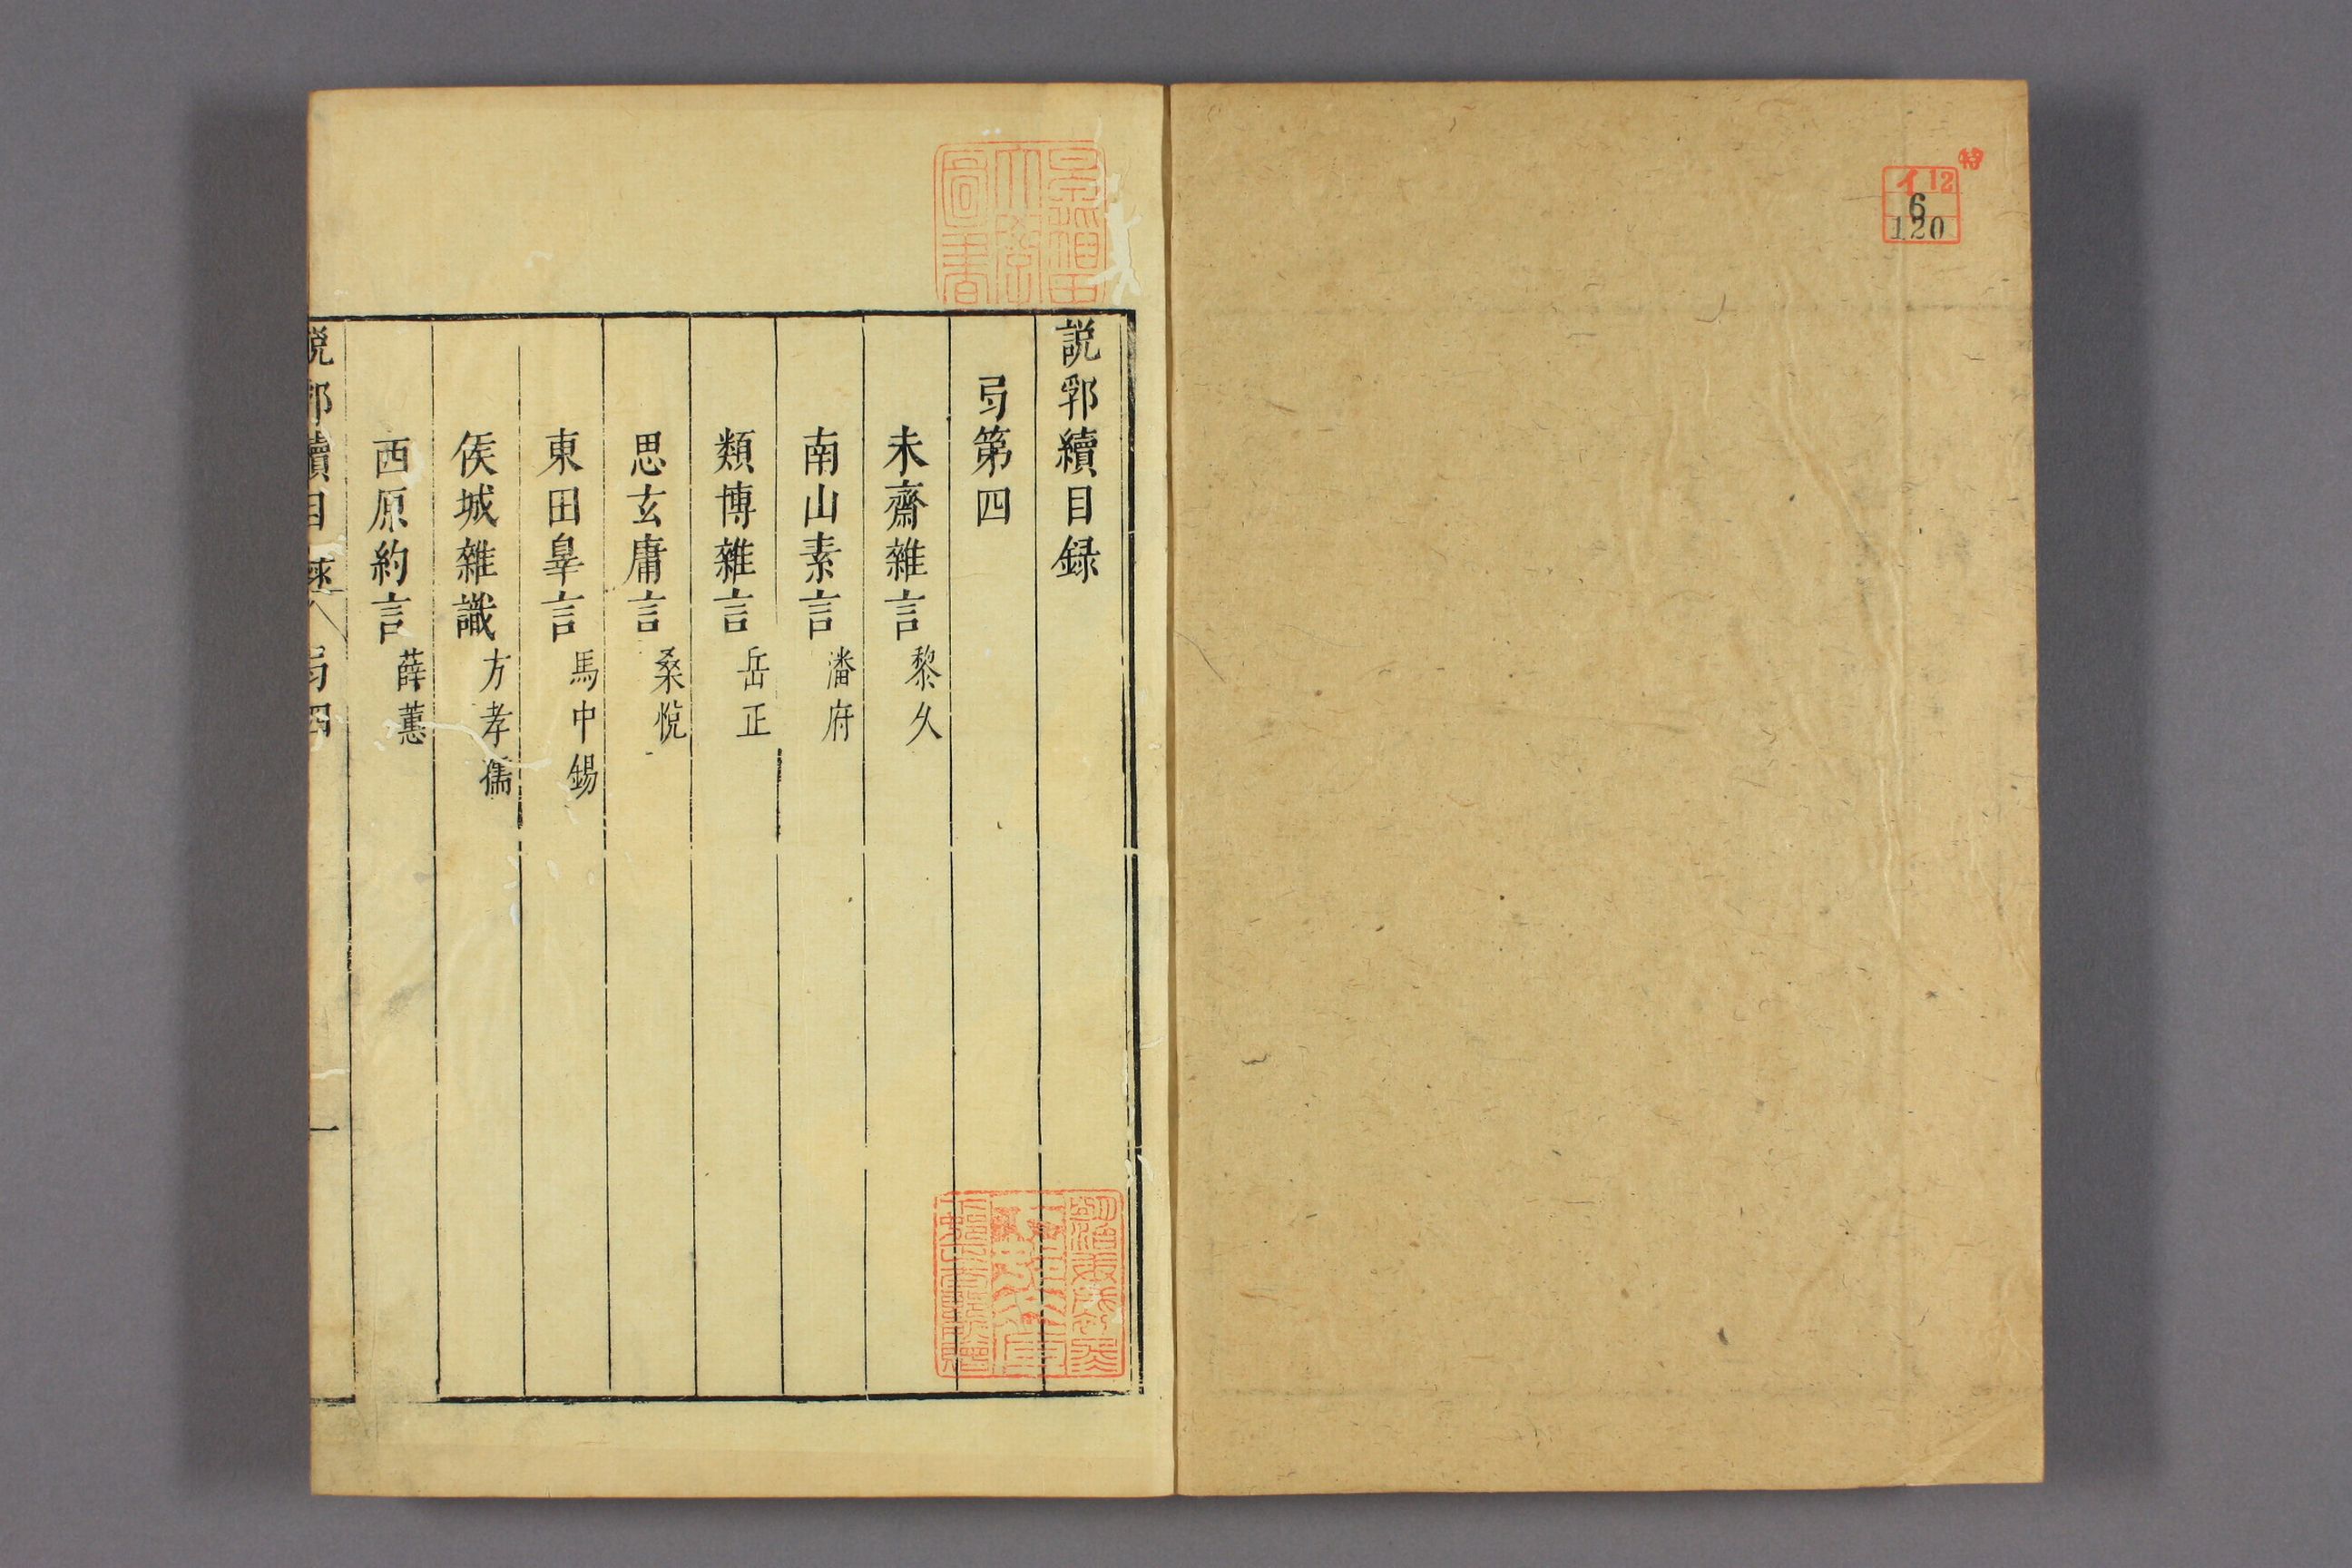 特
イ12
6
120
早稲田
大學
圖書
説郛續目録
弓第四
未齋雜言 黎久
南山素言 潘府
類博雜言 岳正
思玄庸言 桑悅
東田皐言 馬中錫
侯城雜識 方孝孺
西原約言 薛蕙
説郛續目錄 弓四
一